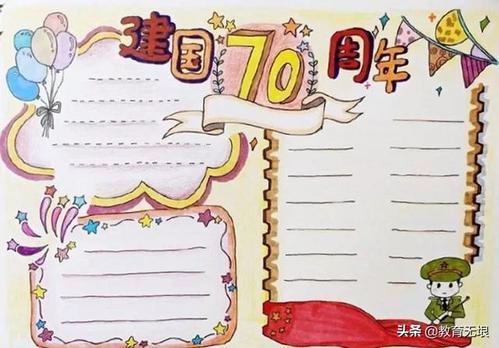 建国70周年
头条 @教育无垠